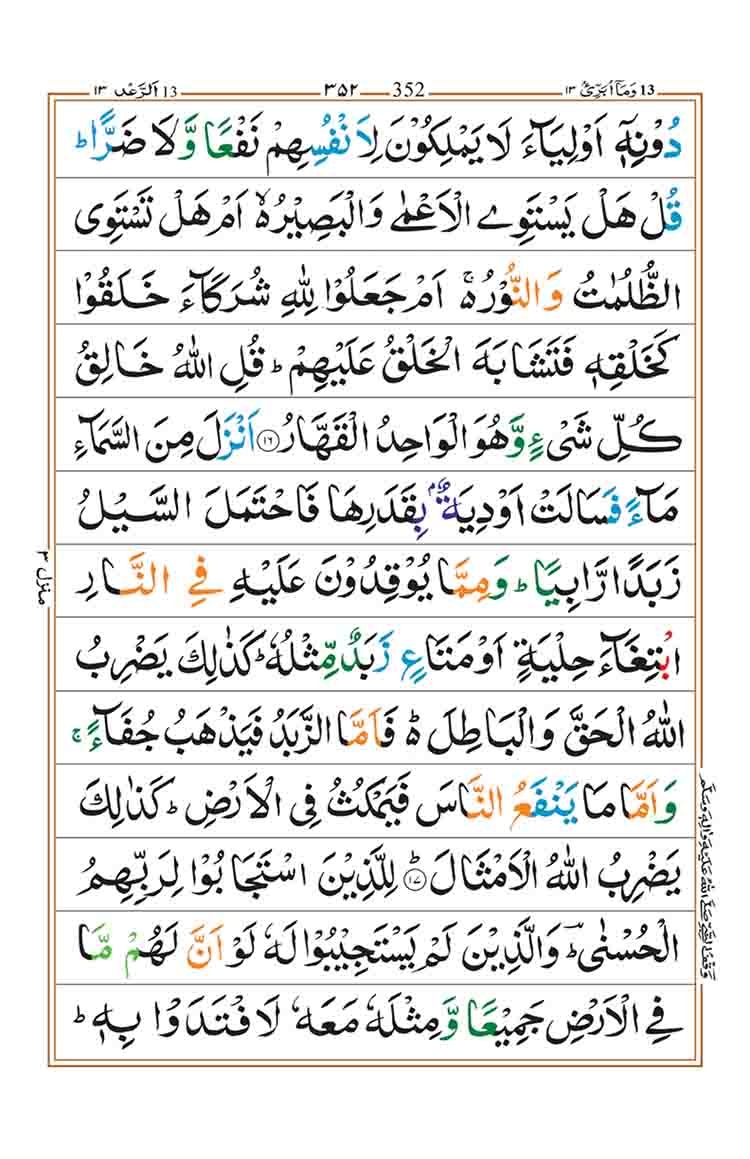 13 وَمَاۤ اُبَرِّئُ ١٣
352 ٣٥٢
13 اَلرَّعْد ١٣
دُوْنِهٖۤ اَوْلِيَآءَ لَا يَمْلِكُوْنَ لِاَنْفُسِهِمْ نَفْعًا وَّلَا ضَرًّا ؕ
قُلْ هَلْ يَسْتَوِى الْاَعْمٰى وَالْبَصِيْرُ ۙ اَمْ هَلْ تَسْتَوِى
الظُّلُمٰتُ وَالنُّوْرُ ۚ اَمْ جَعَلُوْا لِلّٰهِ شُرَكَآءَ خَلَقُوْا
كَخَلْقِهٖ فَتَشَابَهَ الْخَلْقُ عَلَيْهِمْ ؕ قُلِ اللّٰهُ خَالِقُ
كُلِّ شَىْءٍ وَّهُوَ الْوَاحِدُ الْقَهَّارُ ۝١٦ اَنْزَلَ مِنَ السَّمَآءِ
مَآءً فَسَالَتْ اَوْدِيَةٌۢ بِقَدَرِهَا فَاحْتَمَلَ السَّيْلُ
زَبَدًا رَّابِيًا ؕ وَمِمَّا يُوْقِدُوْنَ عَلَيْهِ فِى النَّارِ
ابْتِغَآءَ حِلْيَةٍ اَوْ مَتَاعٍ زَبَدٌ مِّثْلُهٗ ؕ كَذٰلِكَ يَضْرِبُ
اللّٰهُ الْحَقَّ وَالْبَاطِلَ ؕ۬ فَاَمَّا الزَّبَدُ فَيَذْهَبُ جُفَآءً ۚ
وَاَمَّا مَا يَنْفَعُ النَّاسَ فَيَمْكُثُ فِى الْاَرْضِ ؕ كَذٰلِكَ
يَضْرِبُ اللّٰهُ الْاَمْثَالَ ؕ ۝١٧ لِلَّذِيْنَ اسْتَجَابُوْا لِرَبِّهِمُ
الْحُسْنٰى ؔؕ وَالَّذِيْنَ لَمْ يَسْتَجِيْبُوْا لَهٗ لَوْ اَنَّ لَهُمْ مَّا
فِى الْاَرْضِ جَمِيْعًا وَّمِثْلَهٗ مَعَهٗ لَافْتَدَوْا بِهٖ ؕ
منزل ٣
وقف النبی صلی الله علیه واله وسلم